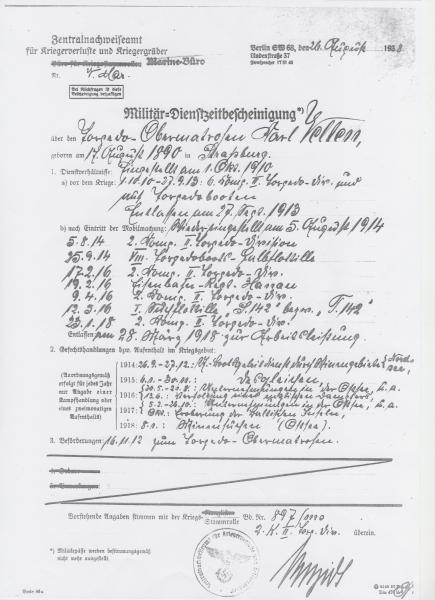 Zentralnachweiseamt
für Kriegerverluste und Kriegergräber
Büro für Kriegsstammrollen Marine-Büro
Nr.
Berlin SW 68, den 26. August 1938
Lindenstraße 37
Fernsprecher 17 51 41
Bei Rückfragen ist diese
Bescheinigung beizufügen
Militär=Dienstzeitbescheinigung*)
über den Torpedo-Obermatrosen Karl Velten,
geboren am 17. August 1890 in Straßburg.
1. Dienstverhältnisse: Eingestellt am 1. Okt. 1910
a) vor dem Kriege: 1.10.10-27.9.13: 6. Komp. II. Torpedo-Div. und
auf Torpedobooten
Entlassen am 27. Sept. 1913
b) nach Eintritt der Mobilmachung: Wiedereingestellt am 5. August 1914
5.8.14 2. Komp. II. Torpedo-Division
25.9.14 VIII. Torpedoboots-Halbflottille
17.2.16 2. Komp. II. Torpedo-Div.
19.2.16 Eisenbahn-Regt. Hanau
9.4.16 2. Komp. II. Torpedo-Div.
12.3.16 I. "S. 142" bezw. "T. 142"
23.1.18 2. Komp. II. Torpedo-Div.
Entlassen am 28. März 1918 zur Arbeitsleistung
2. Gefechtshandlungen bzw. Aufenthalt im Kriegsgebiet:
(Anordnungsgemäß
erfolgt für jedes Jahr
nur Angabe einer
Kampfhandlung oder
eines zweimonatigen
Aufenthalts)
1914: 26.9.-27.12.: Nordsee,
1915: 6.1.-30.11.: desgleichen,
1916: Unternehmungen in der Ostsee, u.a.
13.6.: Verfolgung eines Dampfers,
1917: 5.2.-26.10.: Unternehmungen in der Ostsee, u.a.
Okt.: Eroberung der baltischen Inseln,
1918: 5.1. Minensuchen (Ostsee).
3. Beförderungen: 16.11.12 zum Torpedo-Obermatrosen.
Vorstehende Angaben stimmen mit der Kriegs-Stammrolle Bd. Nr. 897
2. K. II. Torp. Div. überein.
*) Militärpässe werden bestimmungsgemäß
nicht mehr ausgestellt.